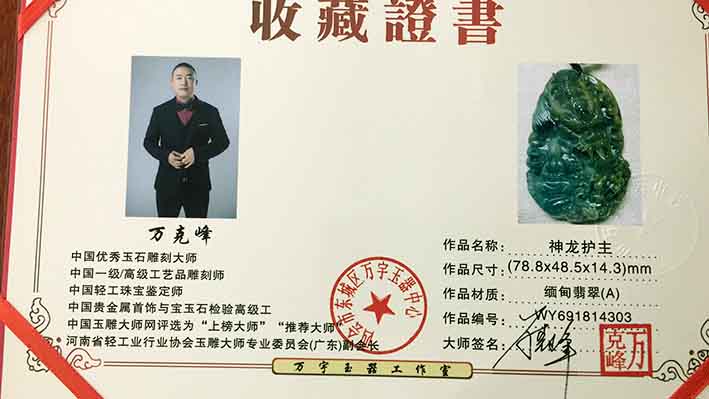 收藏證書
万克峰
中国优秀玉石雕刻大师
中国一级/高级工艺品雕刻师
中国轻工珠宝鉴定师
中国贵金属首饰与宝玉石检验高级工
中国玉雕大师网评选为“上榜大师”“推荐大师”
河南省轻工业行业协会玉雕大师专业委员会(广东)副会长
作品名称: 神龙护主
作品尺寸: (78.8x48.5x14.3)mm
作品材质: 缅甸翡翠(A)
作品编号: WY691814303
大师签名:
万克峰
市东城区万宇玉器中心
万宇玉器工作室